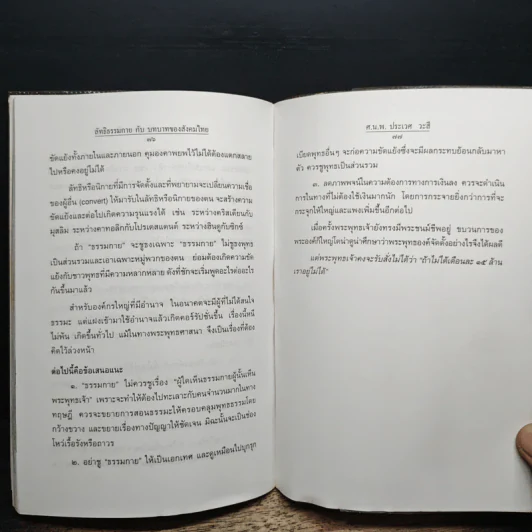 ลัทธิธรรมกาย กับ บทบาทของสังคมไทย
๗๖
ขัดแย้งทั้งภายในและภายนอก คุมองคาพยพไว้ไม่ได้ต้องแตกสลาย
ไปหรือคงอยู่ไม่ได้
ลัทธิหรือนิกายที่มีการจัดตั้งและที่พยายามจะเปลี่ยนความเชื่อ
ของผู้อื่น (convert) ให้มารับในลัทธินิกายของตน จะสร้างความ
ขัดแย้งและต่อไปเกิดความรุนแรงได้ เช่น ระหว่างคริสเตียนกับ
มุสลิม ระหว่างคาทอลิกกับโปรเตสแตนต์ ระหว่างฮินดูกับซิกข์
ถ้า "ธรรมกาย" จะชูธงเฉพาะ "ธรรมกาย" ไม่ชูธงพุทธ
เป็นส่วนรวมและเอาเฉพาะหมู่พวกของตน ย่อมต้องเกิดความขัด
แย้งกับชาวพุทธที่มีความหลากหลาย ดังที่ชักจะเริ่มพูดอะไรต่ออะไร
กันขึ้นมาแล้ว
สำหรับองค์กรใหญ่ที่มีอำนาจ ในอนาคตจะมีผู้ที่ไม่ได้สนใจ
ธรรมะ แต่แฝงเข้ามาใช้อำนาจแล้วเกิดคอร์รัปชั่นขึ้น เรื่องนี้หนี
ไม่พ้น เกิดขึ้นทั่วไป แม้ในทางพระพุทธศาสนา จึงเป็นเรื่องที่ต้อง
คิดไว้ล่วงหน้า
ต่อไปนี้คือข้อเสนอแนะ
๑. "ธรรมกาย" ไม่ควรชูเรื่อง "ผู้ใดเห็นธรรมกายผู้นั้นเห็น
พระพุทธเจ้า" เพราะจะทำให้ต้องไปทะเลาะกับคนจำนวนมากในทาง
ทฤษฎี ควรจะขยายการสอนธรรมะให้ครอบคลุมพุทธธรรมโดย
กว้างขวาง และขยายเรื่องทางปัญญาให้ชัดเจน มิฉะนั้นจะเป็นช่อง
โหว่เรื้อรังหรือถาวร
๒. อย่าชู "ธรรมกาย" ให้เป็นเอกเทศ และดูเหมือนไปบุกรุก
ศ.น.พ. ประเวศ วะสี
๗๗
เบียดพุทธอื่นๆ จะก่อความขัดแย้งซึ่งจะมีผลกระทบย้อนกลับมาหา
ตัว ควรชูพุทธเป็นส่วนรวม
๓. ลดภาพพจน์ในความต้องการทางการเงินลง ควรจะดำเนิน
การในทางที่ไม่ต้องใช้เงินมากนัก โดยการกระจายยิ่งกว่าการที่จะ
กระจุกให้ใหญ่และแพงเพิ่มขึ้นอีกต่อไป
เมื่อครั้งพระพุทธเจ้ายังทรงมีพระชนม์ชีพอยู่ ขบวนการของ
พระองค์ก็ใหญ่โตน่าดูน่าศึกษาว่าพระพุทธองค์จัดตั้งอย่างไรจึงได้ผลดี
แต่พระพุทธเจ้าคงจะรับสั่งไม่ได้ว่า "ถ้าไม่ได้เดือนละ ๑๕ ล้าน
เราอยู่ไม่ได้"